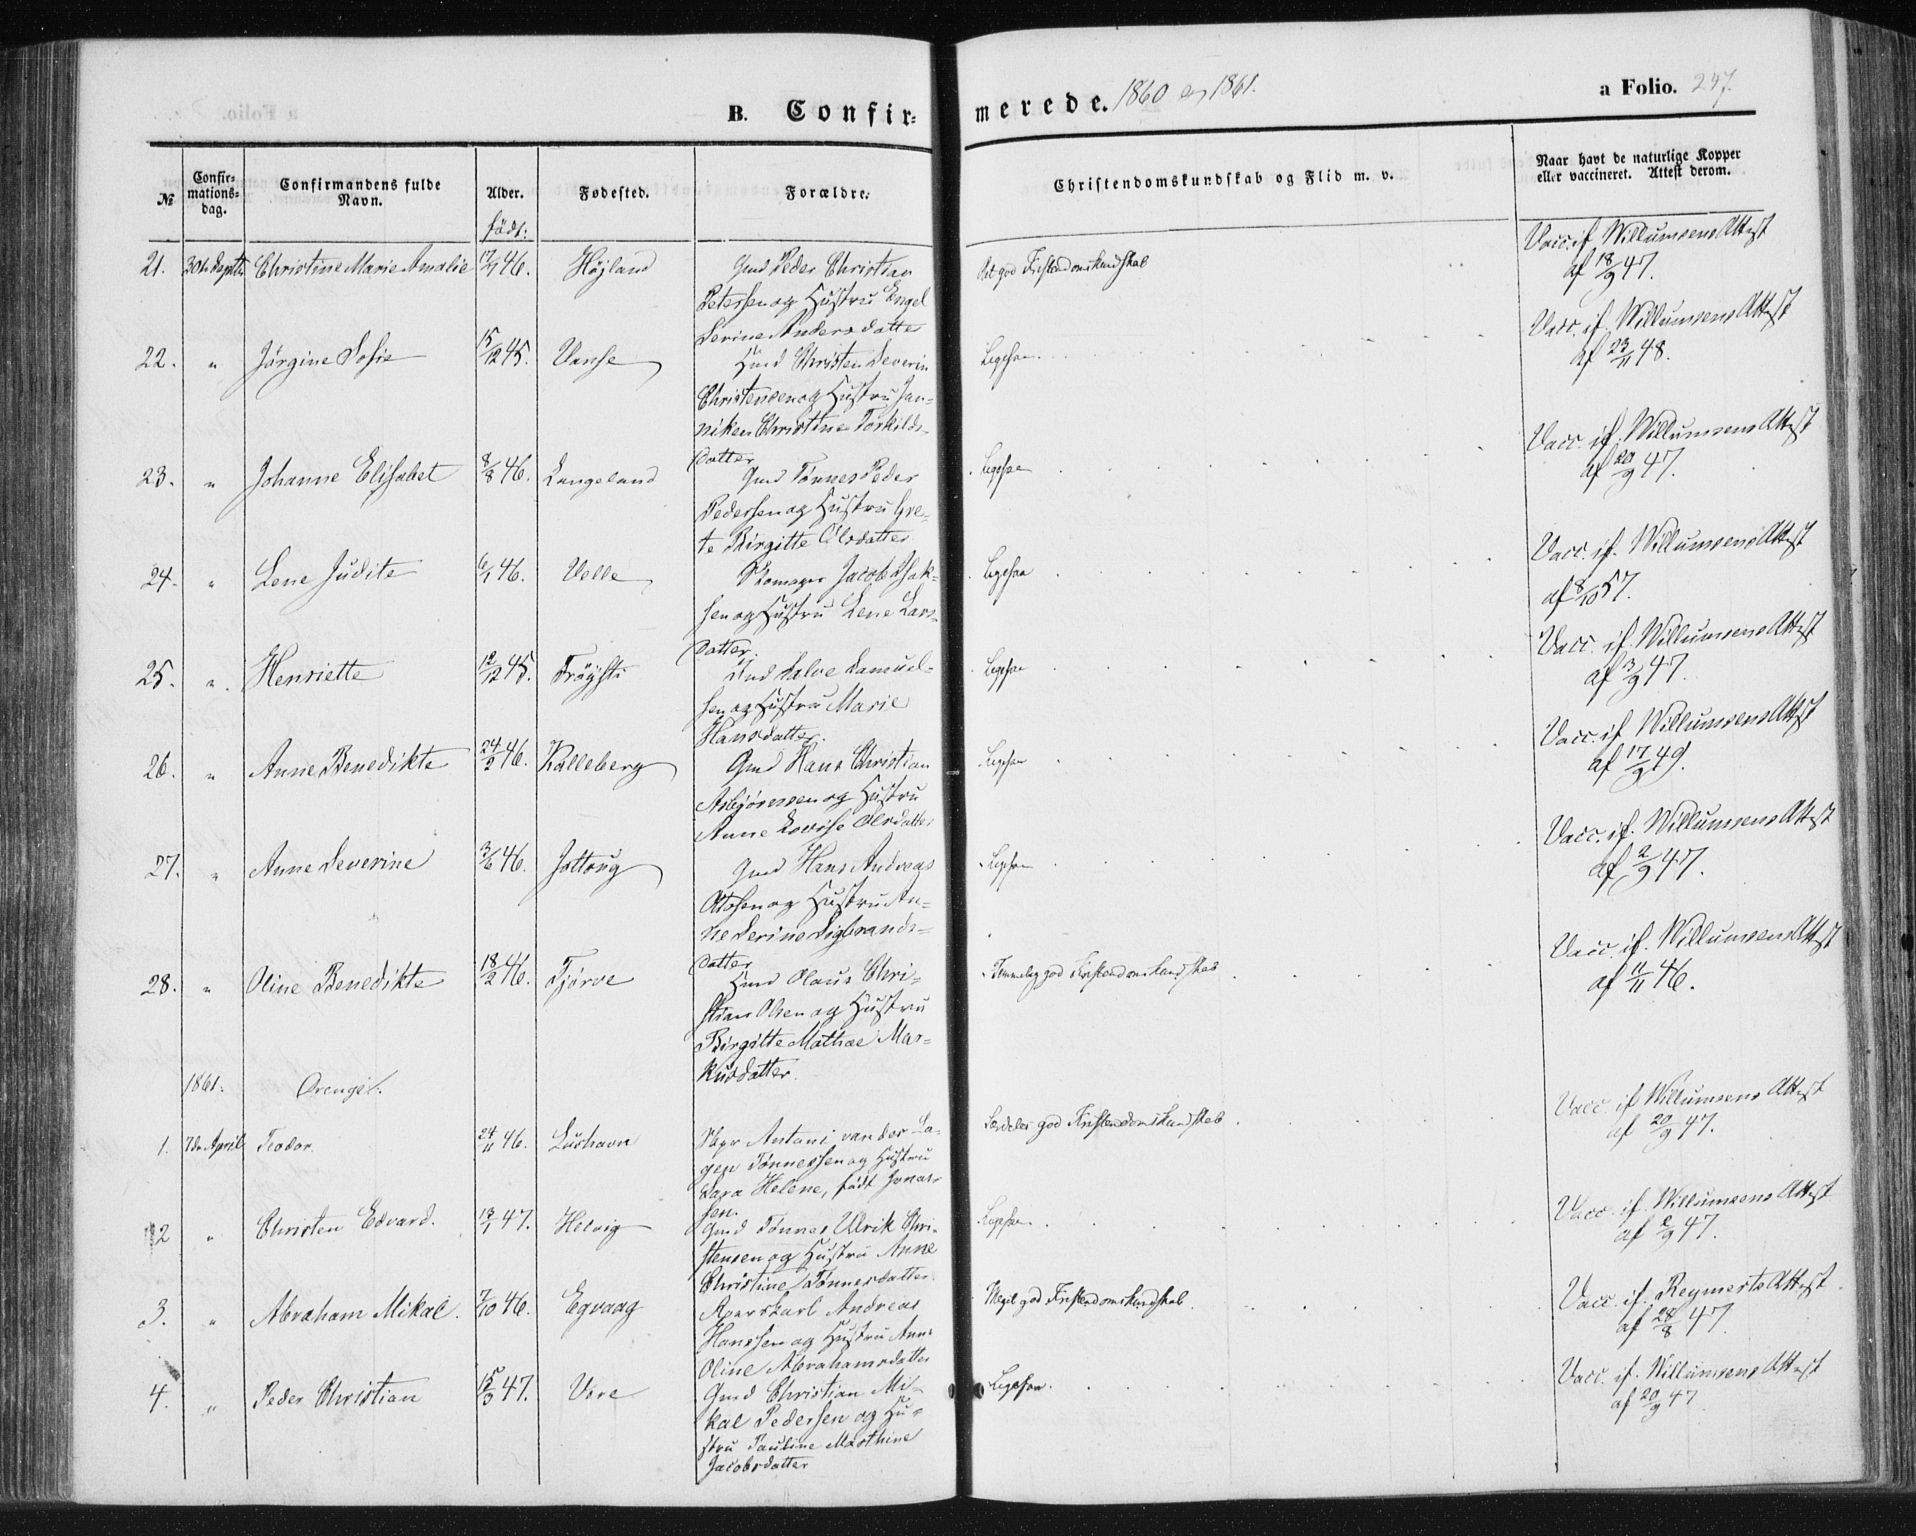 B. Confir-
merede. 1860 og 1861.
a Folio. 247.
№
Confir-
mations-
dag.
Confirmandens fulde
Navn.
Alder.
født:
Fødested.
Forældre.
Christendomskundskab og Flid m. v.
Naar havt de naturlige Kopper
eller vaccineret. Attest derom.
21. 30te Septbr Christine Marie Amalie 17/1 46. Højland
Gmd Peder Christian
Petersen og Hustru Engel
Serine Andersdatter
god Kristendomskundskab
Vacc. if. Willumsens Attest
af 18/9 47.
22. " Jørgine Sofie 15/12 45. Vanse
Hmd Christen Severin
Christensen og Hustru Jan-
niken Christine Torkilds-
datter
Ligesaa.
Vacc. if. Willumsens Attest
af 23/11 48.
23. " Johanne Elisabet 8/8 46. Langeland
Gmd Tønnes Peder
Pedersen og Hustru Gre-
te Birgitte Olsdatter
Ligesaa
Vacc. if. Willumsens Attest
af 20/9 47.
24. " Lene Judite 6/1 46. Velle
Skomager Jacob Isak-
sen og Hustru Lene Lars-
datter.
Ligesaa
Vacc. if. Willumsens Attest
af 8/10 57.
25. " Henriette 12/12 45.
Salve Samuel-
sen og Hustru Marie
Hansdatter.
Ligesaa
Vacc. if. Willumsens Attest
af 3/9 47.
26. " Anne Benedikte 24/2 46. Kalleberg
Gmd Hans Christian
Asbjørnsen og Hustru
Anne Lovise Olsdatter
Ligesaa
Vacc. if. Willumsens Attest
af 17/9 49.
27. " Anne Severine 3/6 46. Jølloug
Gmd Hans Andreas
Atlesen og Hustru An-
ne Serine Sigbrands-
datter
Ligesaa
Vacc. if. Willumsens Attest
af 2/9 47.
28. " Oline Benedikte 18/2 46. Tjørve
Hmd Olaus Chri-
stian Olsen og Hustru
Birgitte Mathea Mar-
kusdatter.
Temmelig god Kristendomskundskab
Vacc. if. Willumsens Attest
af 11/11 46.
1861. Drenge.
1. 7de April Teodor. 24/11 46. Loshavn
Skpr Antoni van der La-
gen Tønnessen og Hustru
Sara Helene, født Jonas-
sen.
Særdeles god Kristendomskundskab.
Vacc. if Willumsens Attest
af 20/9 47.
2 " Christen Edvard. 13/1 47. Helvig
Gmd Tønnes Ulrik Chri-
stensen og Hustru Anne
Christine Tønnesdatter
Ligesaa.
Vacc. if. Willumsens Attest
af 2/9 47.
3. " Abraham Mikal. 7/10 46. Egvaag
Andreas
Hanssen og Hustru Anne
Oline Abrahamsdatter
Meget god Kristendomskundskab.
Vacc. if. Reymerts Attest.
af 28/8 47.
4. " Peder Christian 15/3 47. Vere
Gmd Christian Mi-
kal Pedersen og Hu-
stru Pauline Marthine
Jacobsdatter
Ligesaa.
Vacc. if. Willumsens Attest
af 20/9 47